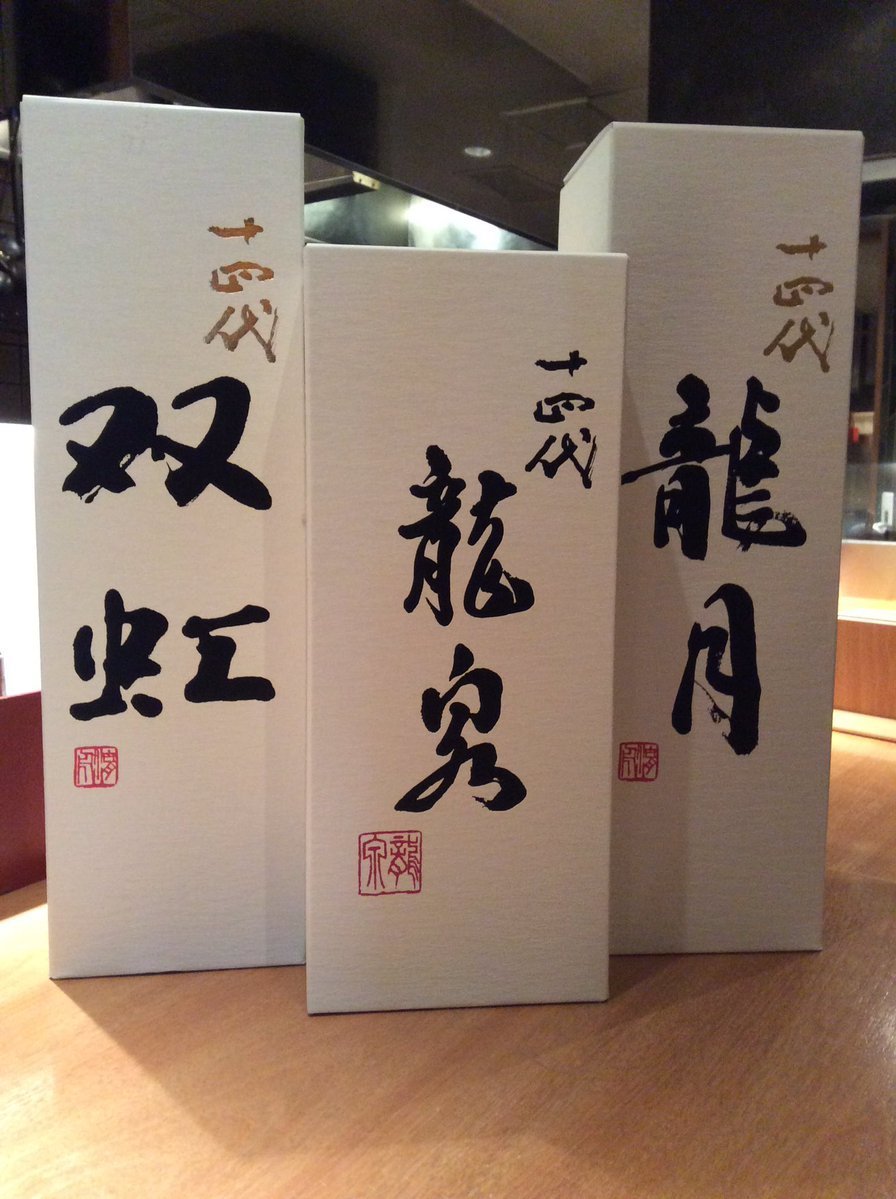 十四代
双虹
十四代
龍泉
龍宗
十四代
龍月